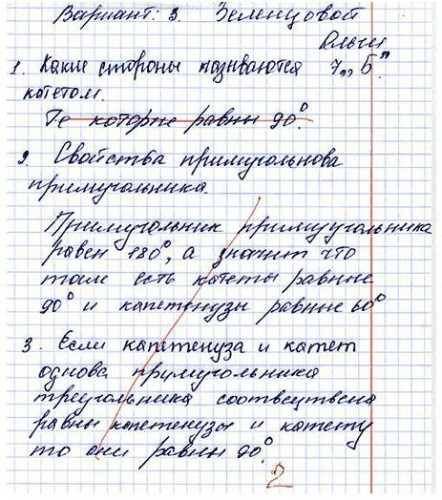 Вариант: 3. Зеленцовой
Ольги
1. Какие стороны называются 7„Б”
котетом.
Те которие равны 90°.
2. Свойства примугольнова
примугольника.
Примугольник примуугольника
равен 180°, а значит что
там есть котеты равные
90° и капетенузы равные 60°
3. Если капетенуза и катет
однова примугольника
треугольника соотвецтвена
равны капетенузы и катету
то они равны 90°.
2